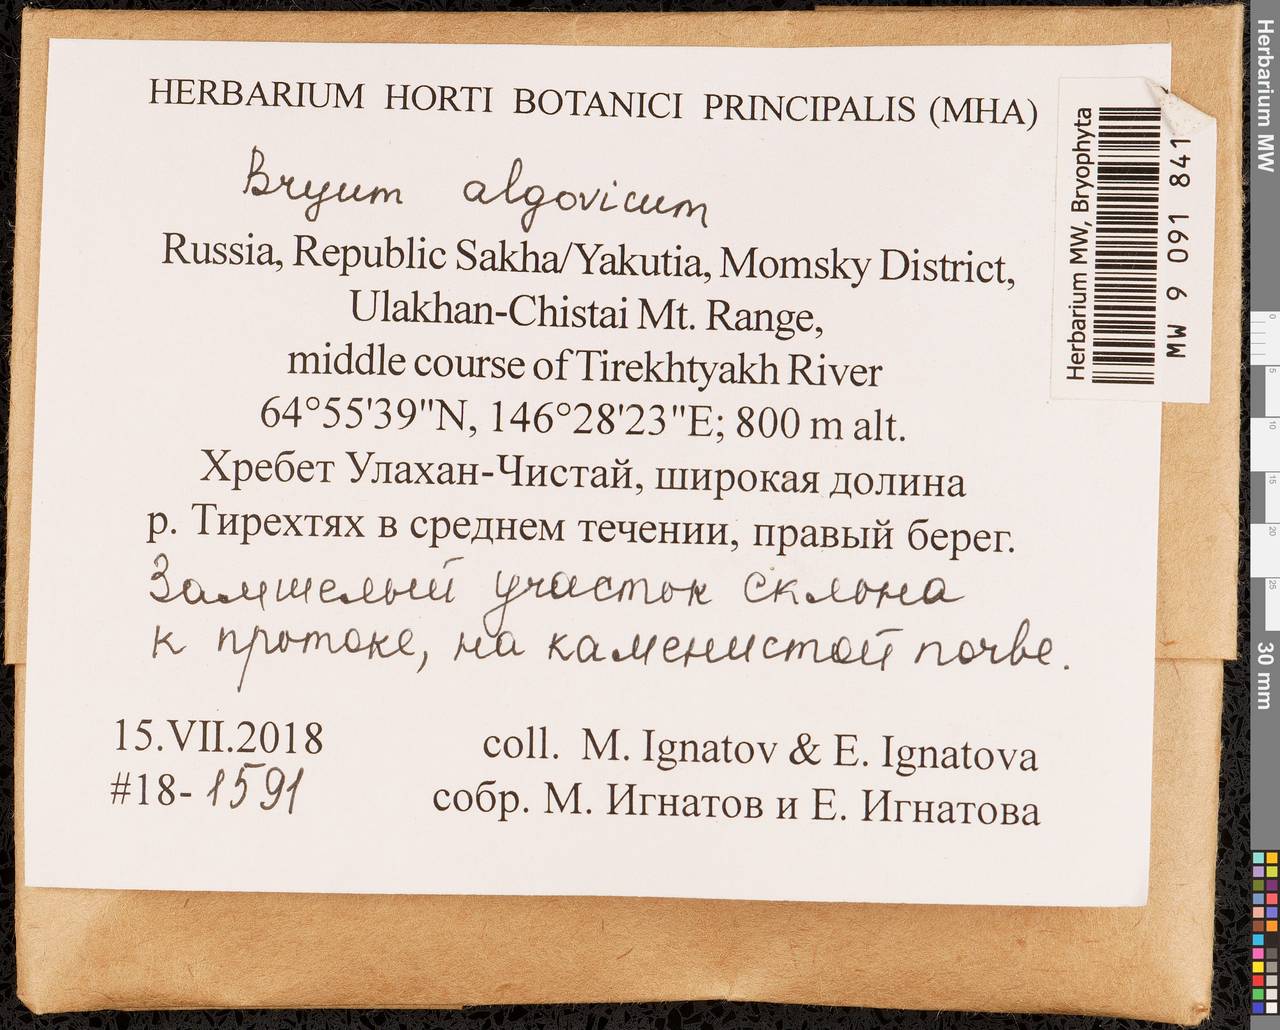 HERBARIUM HORTI BOTANICI PRINCIPALIS (MHA)
Bryum algovicum
Russia, Republic Sakha/Yakutia, Momsky District,
Ulakhan-Chistai Mt. Range,
middle course of Tirekhtyakh River
64°55'39"N, 146°28'23"E; 800 m alt.
Хребет Улахан-Чистай, широкая долина
р. Тирехтях в среднем течении, правый берег.
Замшелый участок склона
к протоке, на каменистой почве.
15.VII.2018
#18-1591
coll. M. Ignatov & E. Ignatova
собр. М. Игнатов и Е. Игнатова
Herbarium MW, Bryophyta
MW 9 091 841
Herbarium MW
0
5
10
15
20
25
30 mm